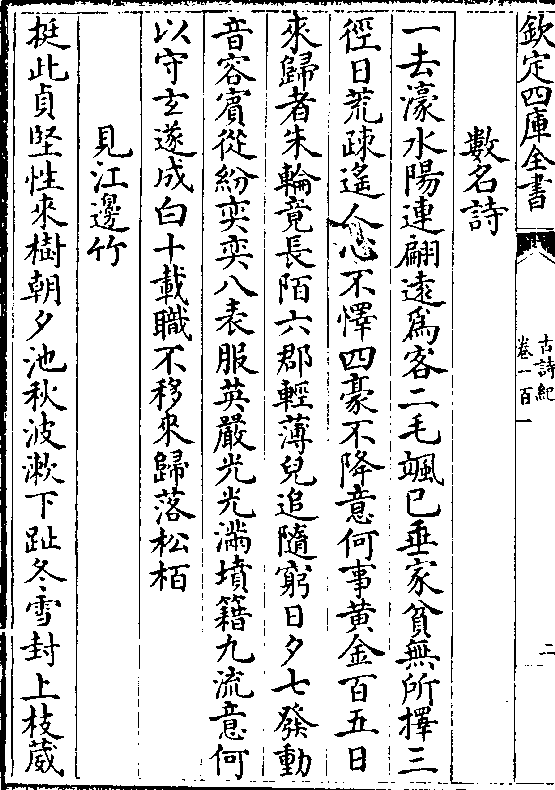 欽定四庫全書
古詩紀
卷一百一
二
數名詩
一去濠水陽連翩逺爲客二毛颯已垂家貧無所擇三
徑日荒疎遙人心不懌四豪不降意何事黄金百五日
來歸者朱輪竟長陌六郡輕薄兒追隨窮日夕七發動
音容賓從紛奕奕八表服英嚴光光滿墳籍九流意何
以守玄遂成白十載職不移來歸落松栢
見江邊竹
挺此貞堅性來樹朝夕池秋波漱下趾冬雪封上枝葳